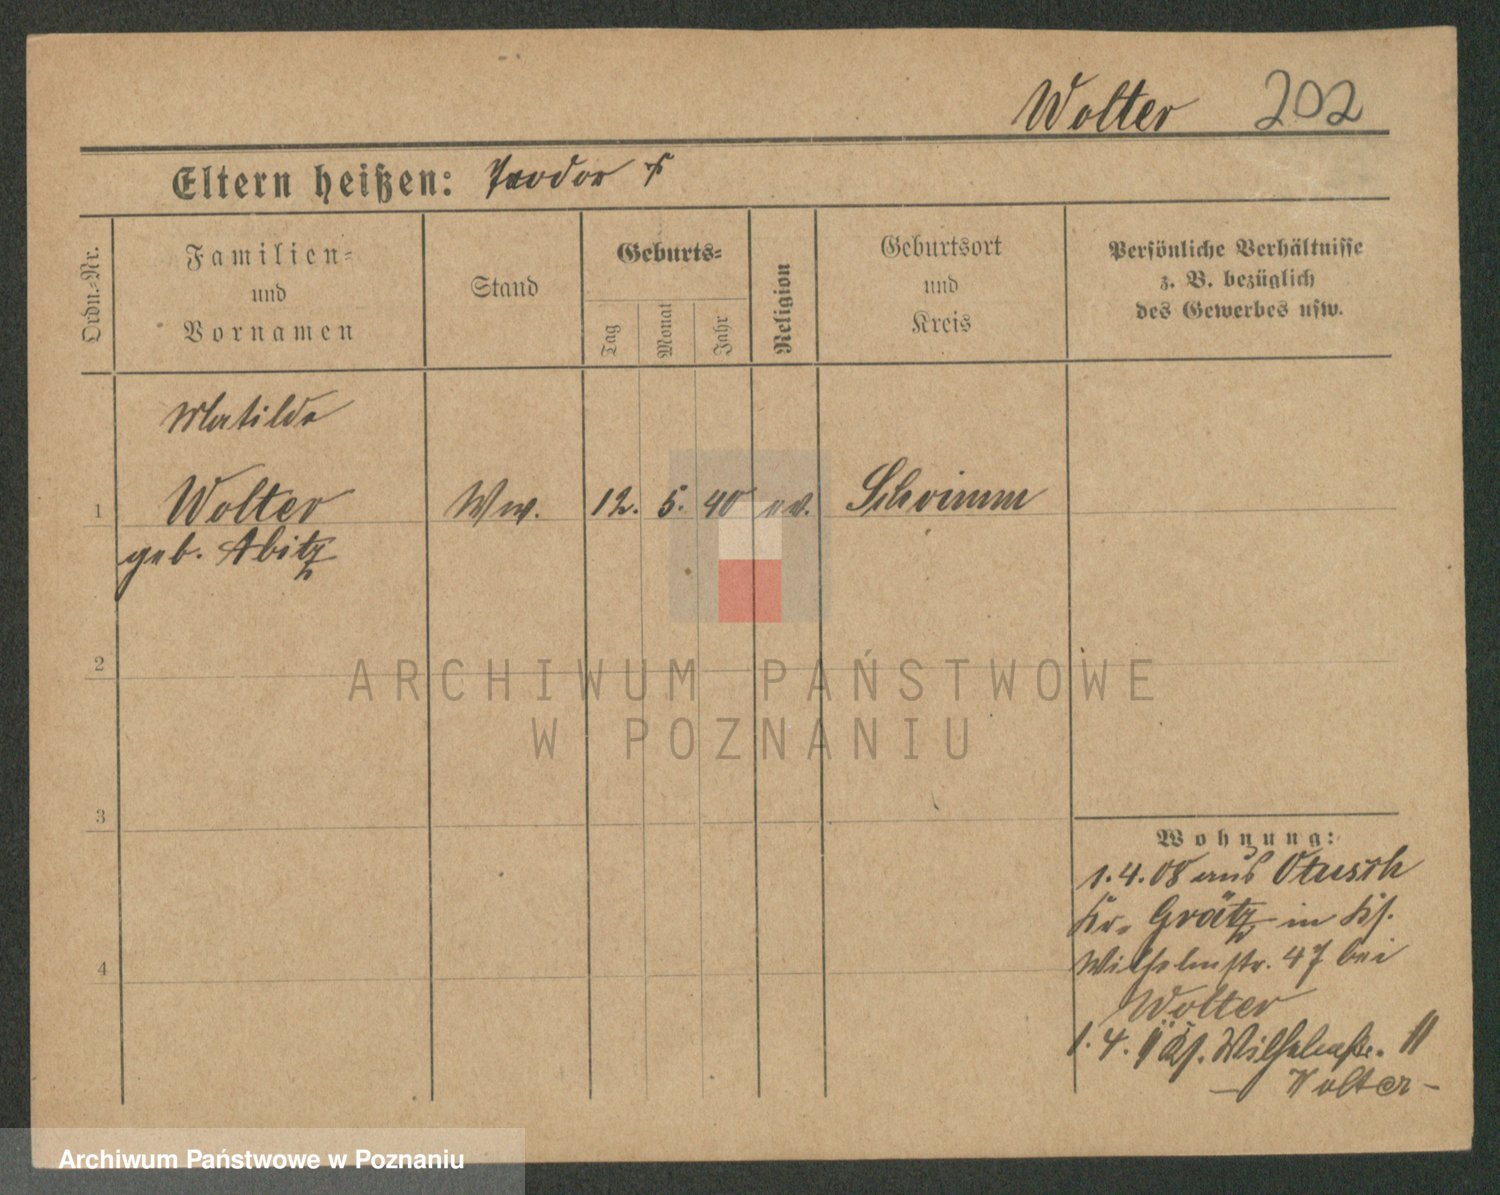 Wolter 202
Eltern heißen: Teodor †
Ordn.-Nr.
Familien-
und
Vornamen
Stand
Geburts-
Tag
Monat
Jahr
Religion
Geburtsort
und
Kreis
Persönliche Verhältnisse
z. B. bezüglich
des Gewerbes usw.
Matilde
1 Wolter Ww. 12. 5. 40 ev.
geb. Abitz
2
3
4
Wohnung:
1.4.08 aus Otusch
Kr. Grätz in Kf.
Wilhelmstr. 47 bei
Wolter
1.4.11 Kf. Wilhelmstr. 11
— Wolter —
ARCHIWUM PAŃSTWOWE
W POZNANIU
Archiwum Państwowe w Poznaniu